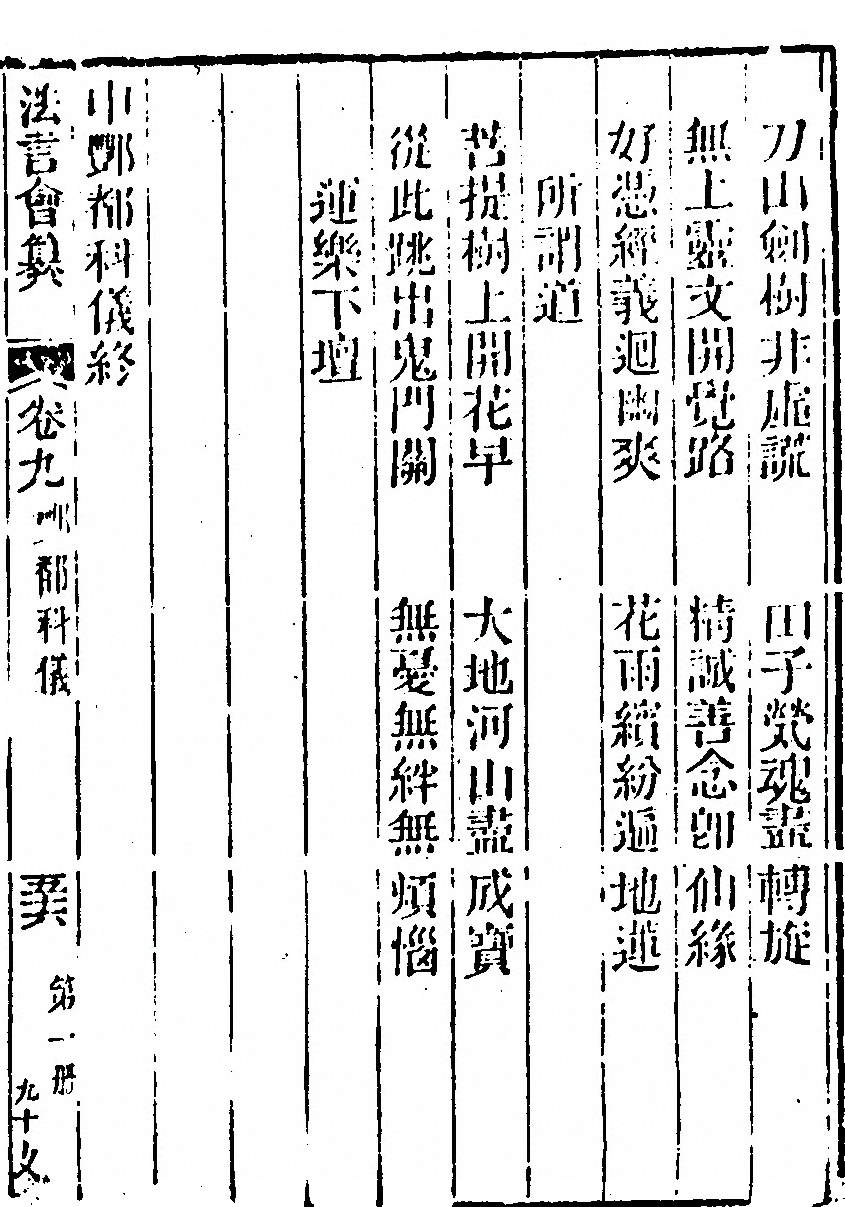 刀山劍樹非虛謊　田子煢魂盡轉旋
無上靈文開覺路　精誠善念卽仙緣
好憑經義迴幽爽　花雨繽紛遍地蓮
所謂道
菩提樹上開花早　大地河山盡成寶
從此跳出鬼門關　無憂無絆無煩惱
運樂下壇
中酆都科儀終
法言會纂　卷九　酆都科儀　第一册　九十